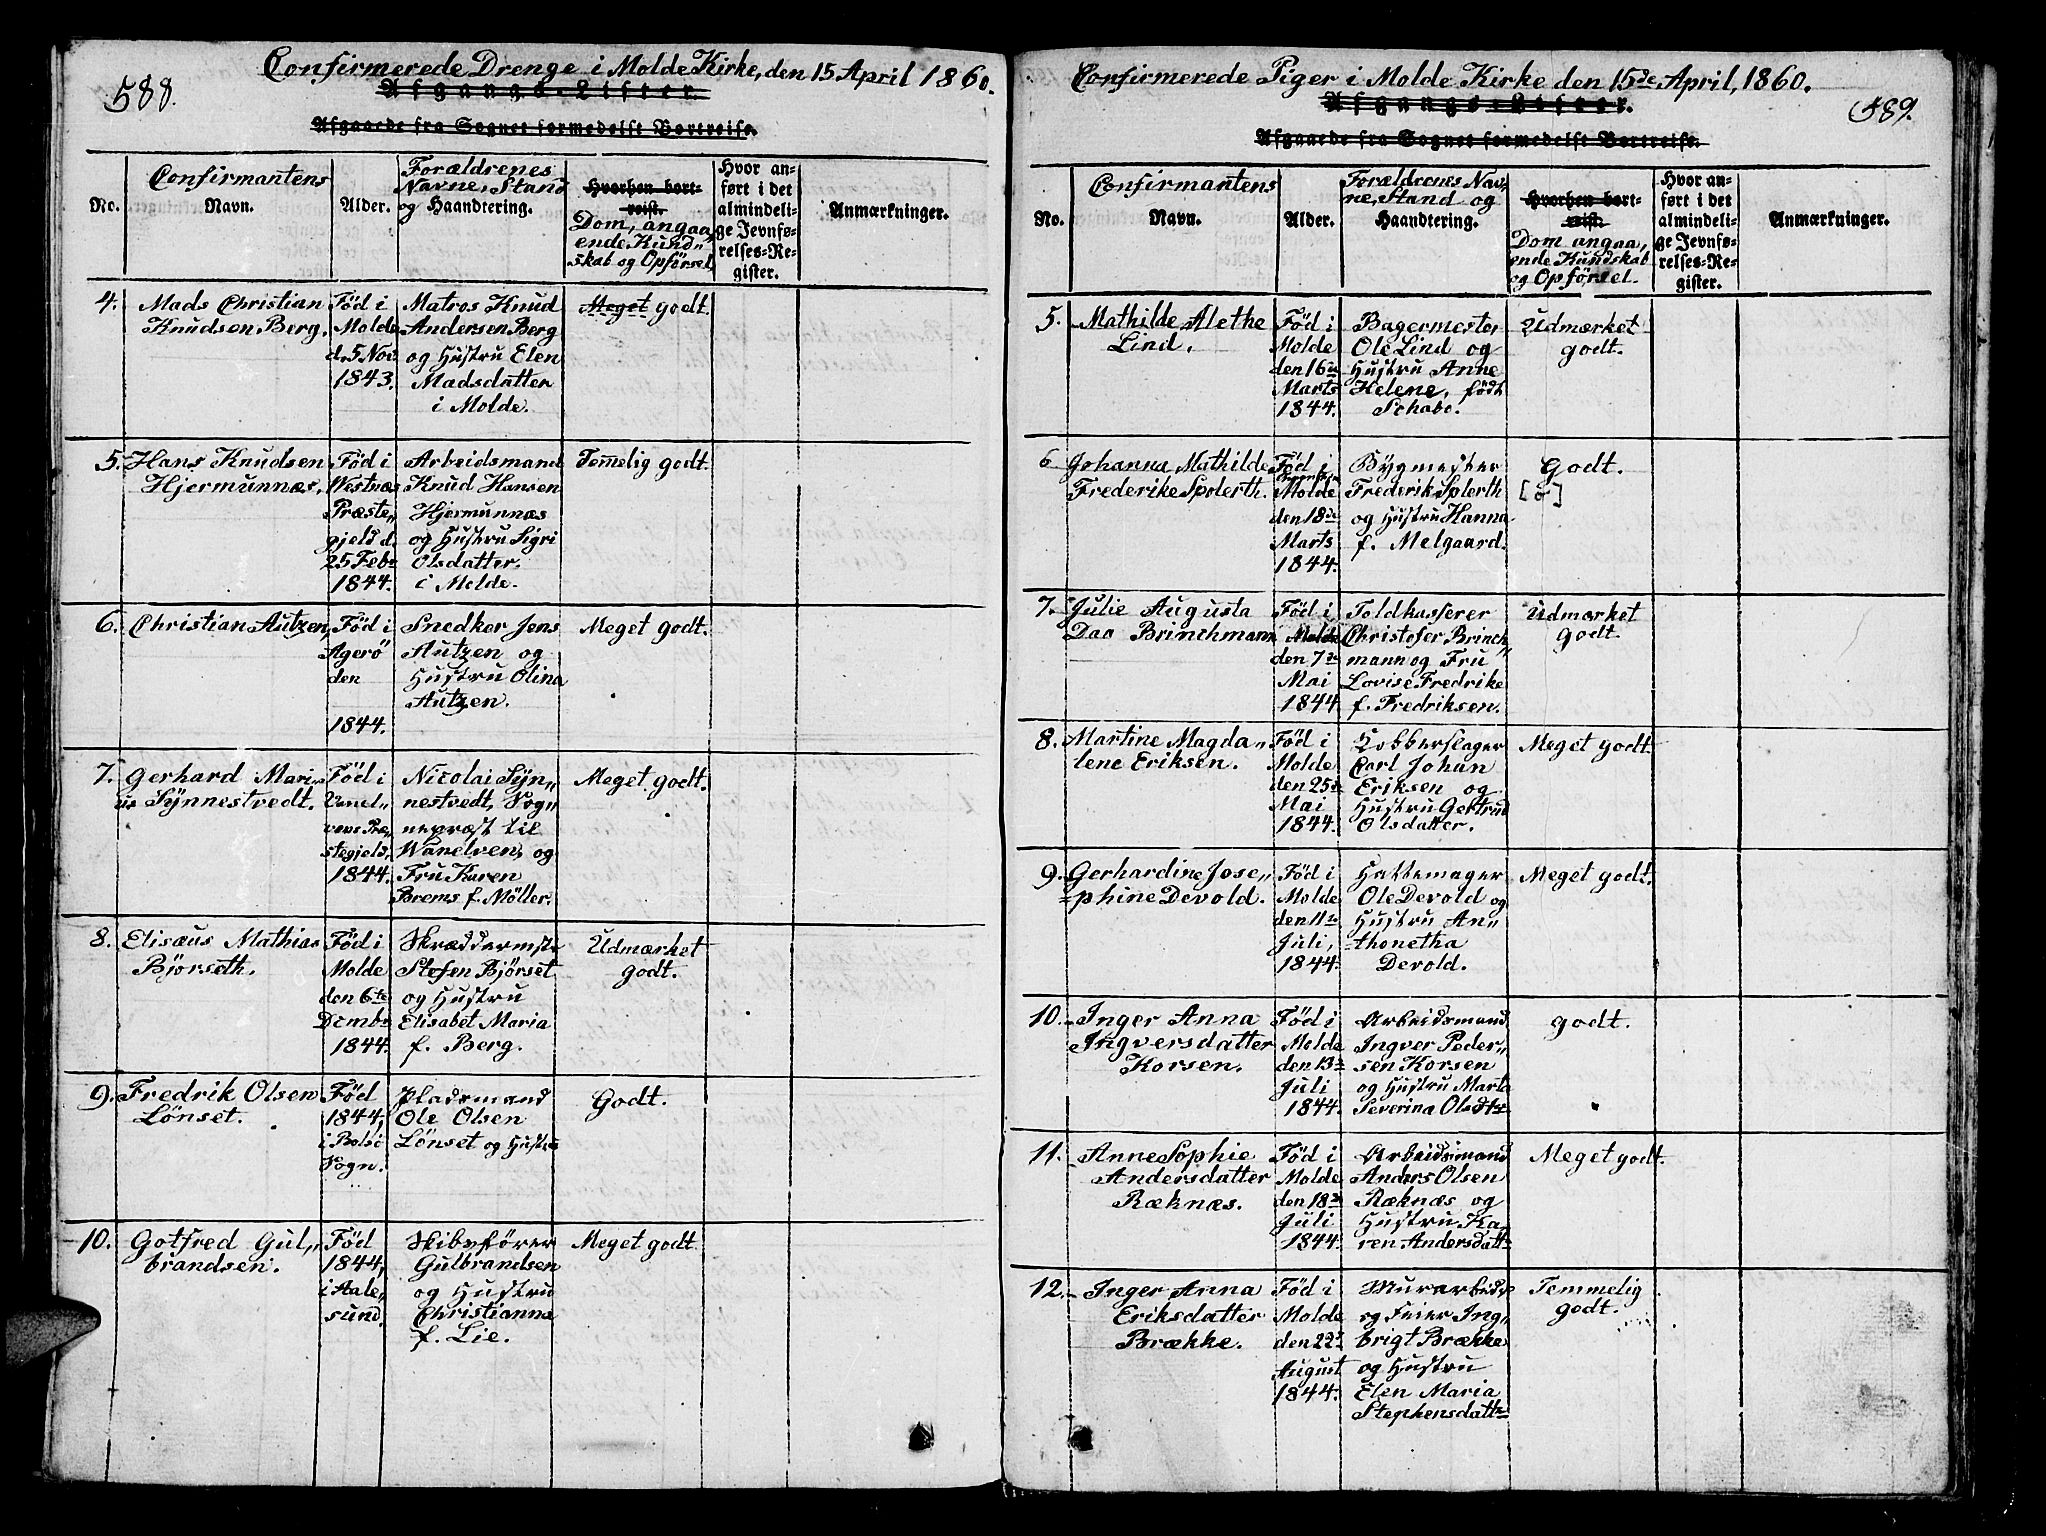 588.
Confirmerede Drenge i Molde Kirke, den 15 April 1860.
Afgangs-Lister.
Afgaaede fra Sognet formedelst Bortreise.
No.
Confirmantens
Navn.
Alder.
Forældrenes
Navne, Stand
og Haandtering.
Hvorhen bort-
reist.
Dom, angaa„
ende Kund„
skab og Opförsel.
Hvor an-
ført i det
almindeli-
ge Jevnfø-
relses-Re-
gister.
Anmærkninger.
4.
Mads Christian
Knudsen Berg.
Föd i
Molde
d. 5 Nov.
1843.
Matros Knud
Andersen Berg
og Hustru Elen
Madsdatter
i Molde.
Meget godt.
5.
Hans Knudsen
Hjermunnæs.
Föd i
Westnæs
Præste„
gjeld d.
25 Febr
1844.
Arbeidsmand
Knud Hansen
Hjermunnæs
og Hustru Sigri
Olsdatter.
i Molde.
Temmelig godt.
6.
Christian Autzen,
Föd i
Agerö
den
1844.
Snedker Jens
Autzen og
Hustru Olina
Autzen.
Meget godt.
7.
Gerhard Mari„
us Synnestvedt.
Föd i
Vanel„
vens Præ„
stegjeld,
1844.
Nicolai Syn„
nestvedt, Sog„
nepræst til
Wanelven, og
Fru Karen
Brems f. Möller.
Meget godt.
8.
Elisæus Mathias
Björseth.
Föd i
Molde
den 6te
Decmbr
1844.
Skræddermstr
Stefen Björset
og Hustru
Elisabet Maria
f. Berg.
Udmærket
godt.
9.
Fredrik Olsen
Lönset.
Föd
1844,
i Bolsö
Sogn.
Pladsmand
Ole Olsen
Lönset og Hustru
Godt.
10.
Gotfred Gul„
brandsen.
Föd
1844,
i Aale„
sund.
Skibsförer
Gulbrandsen
og Hustru
Christianna
f. Lie.
Meget godt
Confirmerede Piger i Molde Kirke den 15de April, 1860.
589.
Afgangs-Lister.
Afgaaede fra Sognet formedelst Bortreise.
No.
Confirmantens
Navn.
Alder.
Forældrenes Nav„
ne, Stand og
Haandtering.
Hvorhen bort-
reist.
Dom angaa„
ende Kundskab
og Opförsel.
Hvor an-
ført i det
almindeli-
ge Jevnfø-
relses-Re-
gister.
Anmærkninger.
5.
Mathilde Alethe
Lind.
Föd i
Molde
den 16de
Marts
1844.
Bagermester
Ole Lind og
Hustru Anne
Helene, födt
Schabo.
Udmærket
godt.
6
Johanna Mathilde
Frederike Spolerth.
Föd i
Molde
den 18de
Marts
1844.
Bygmester
Frederik Splerth
og Hustru Hanna
f. Melgaard.
Godt.
[o]
7.
Julie Augusta
Daa Brinchmann
Föd i
Molde
den 7de
Mai
1844
Toldkasserer
Christofer Brinch„
mann og Fru
Lovise Fredrike
f. Fredriksen.
Udmærket
godt.
8.
Martine Magda„
lene Eriksen.
Föd i
Molde
den 25de
Mai
1844.
Kobberslager
Carl Johan
Eriksen og
Hustru Gertrud
Olsdatter.
Meget godt
9.
Gerhardine Jose„
phine Devold.
Föd i
Molde
den 11te
Juli,
1844.
Hattemager
Ole Devold og
Hustru An„
thonetha
Devold.
Meget godt.
10.
Inger Anna
Ingversdatter
Korsen.
Föd i
Molde
den 13de
Juli
1844.
Arbeidsmand
Ingver Peder„
sen Korsen
og Hustru Marta
Severina Olsdtr
godt.
11.
Anne Sophie
Andersdatter
Ræknæs.
Föd i
Molde
den 18de
Juli
1844.
Arbeidsmand
Anders Olsen
Ræknæs og
Hustru Ka„
ren Andersdattr
Meget godt.
12.
Inger Anna
Eriksdatter
Brække.
Föd i
Molde
den 22de
August
1844.
Murarbeider
og Feier Ing„
brigt Brække
og Hustru
Elen Maria
Stephensdattr
Temmelig
godt.